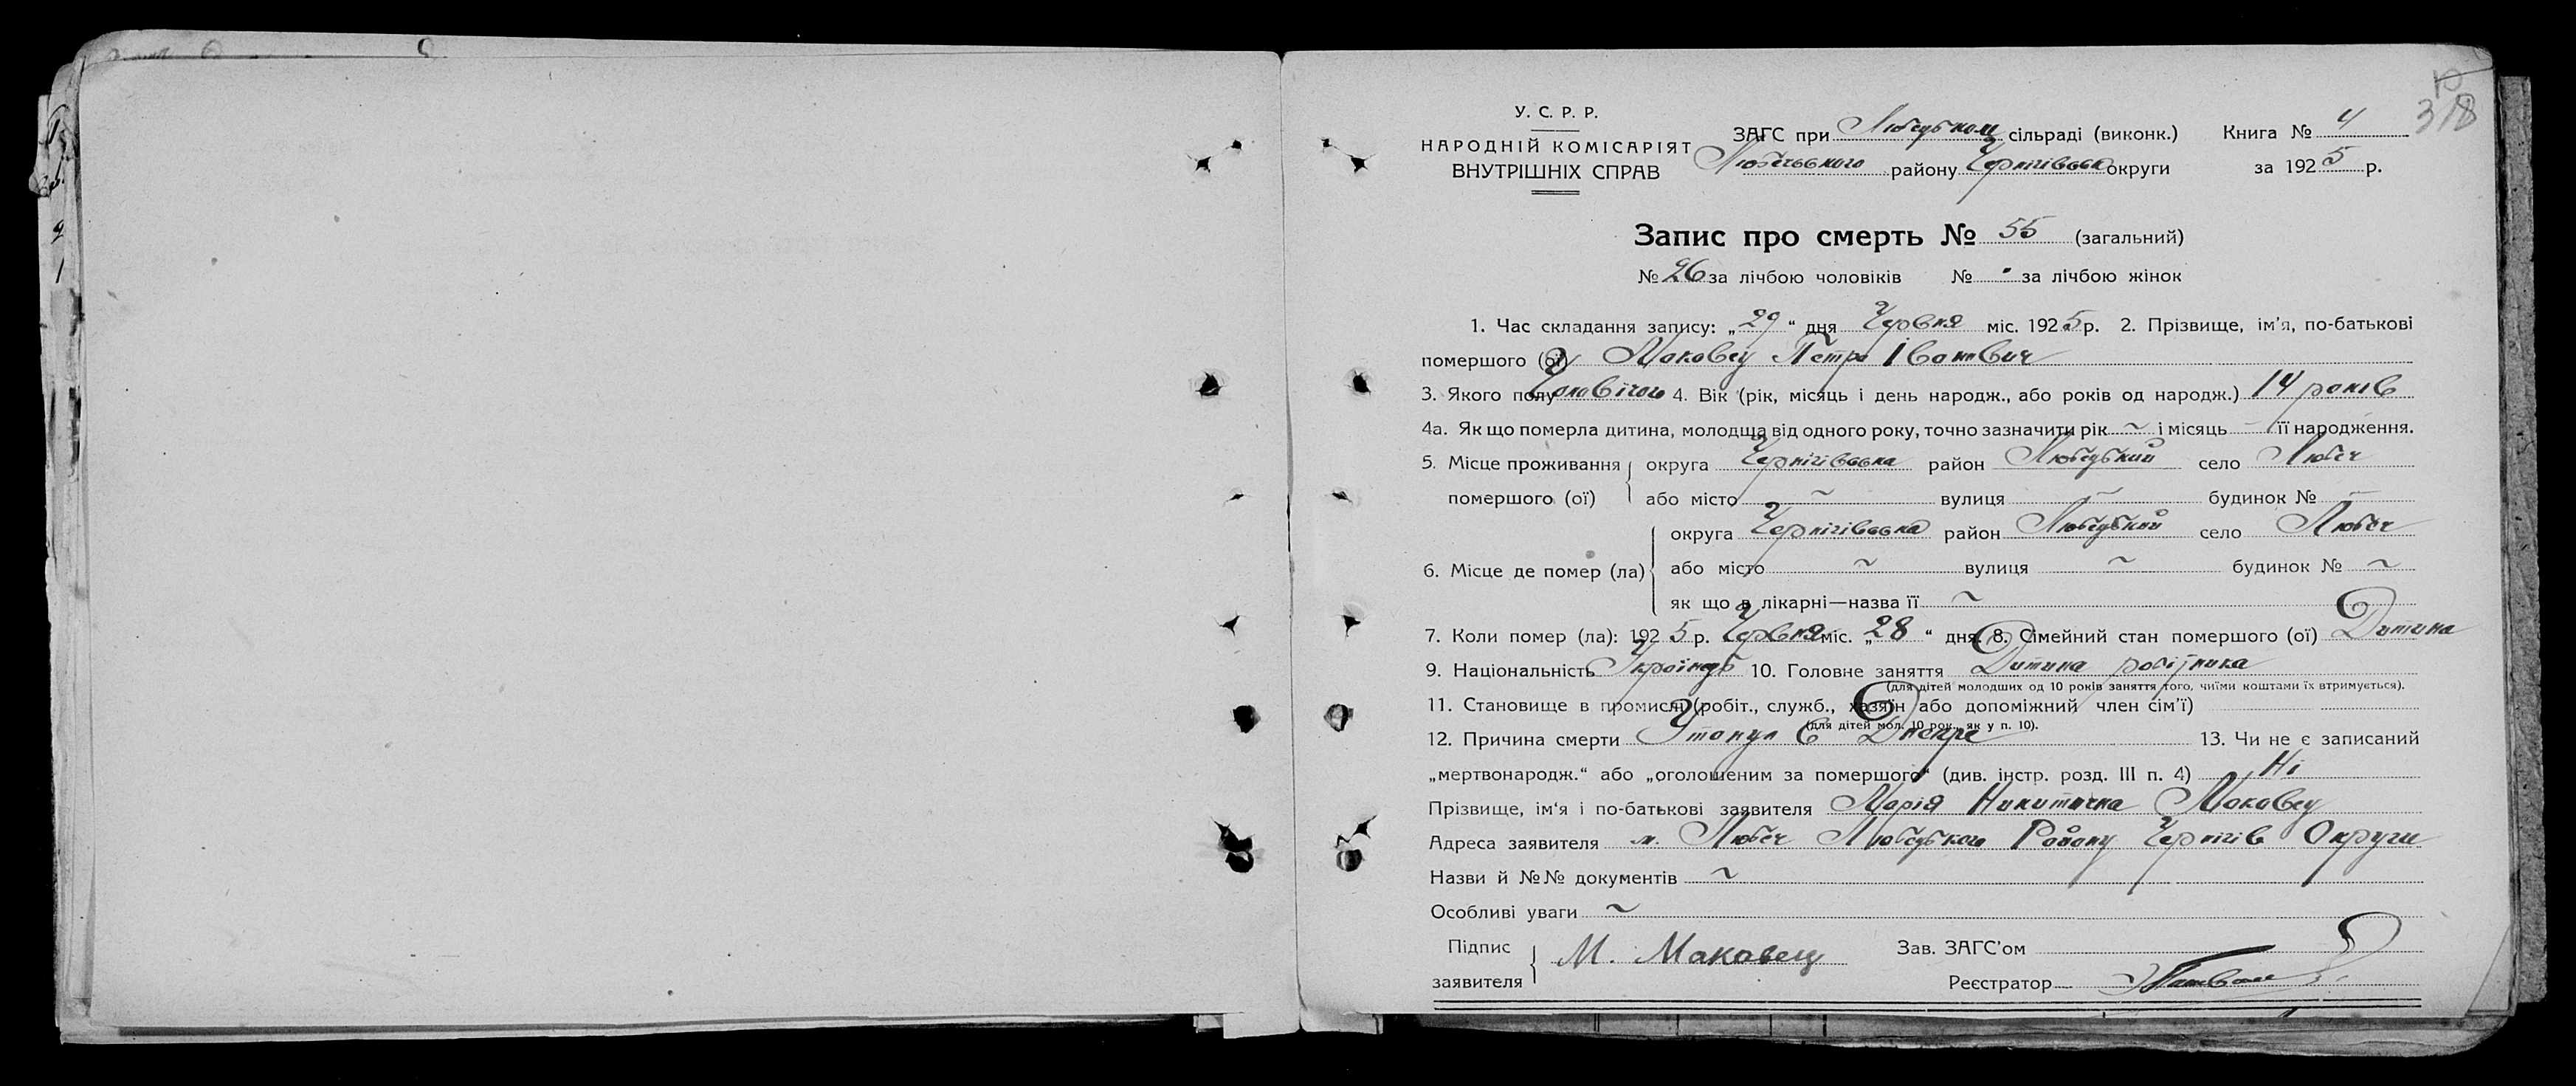 У. С. Р. Р.
НАРОДНІЙ КОМІСАРІЯТ
ВНУТРІШНІХ СПРАВ
ЗАГС при Любецьком сільраді (виконк.)
Любечського району Чернігівськ округи
Книга № 4
за 1925 р.
318
Запис про смерть № 55 (загальний)
№ 26 за лічбою чоловіків № за лічбою жінок
1. Час складання запису: „29“ дня Червня міс. 1925 р. 2. Прізвище, ім'я, по-батькові
помершого (ої) Маковец Петро Іванович
3. Якого полу Чоловічого 4. Вік (рік, місяць і день народж., або років од народж.) 14 років
4а. Як що померла дитина, молодша від одного року, точно зазначити рік ~ і місяць — її народження.
5. Місце проживання помершого (ої) округа Чернігівська район Любецький село Любеч
або місто ~ вулиця ~ будинок № —
6. Місце де помер (ла) округа Чернігівська район Любецький село Любеч
або місто ~ вулиця ~ будинок № ~
як що в лікарні—назва її ~
7. Коли помер (ла): 1925 р. Червня міс. „28“ дня. 8. Сімейний стан помершого (ої) Дитина
9. Національність Українець 10. Головне заняття Дитина робітника
(для дітей молодших од 10 років заняття того, чиїми коштами їх втримується).
11. Становище в промислі (робіт., служб., хазяїн або допоміжний член сім'ї)
(для дітей мол. 10 рок., як у п. 10).
12. Причина смерти Утонул в Днепре 13. Чи не є записаний
„мертвонародж.“ або „оголошеним за помершого“ (див. інстр. розд. III п. 4) Ні
Прізвище, ім'я і по-батькові заявителя Марія Никитична Маковец
Адреса заявителя м. Любеч Любецького Району Чернігів Округи
Назви й №№ документів ~
Особливі уваги ~
Підпис заявителя М. Маковец
Зав. ЗАГС'ом
Реєстратор